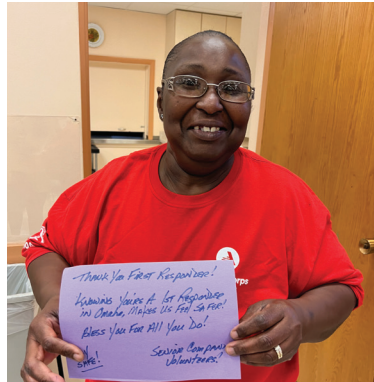 THANK YOU FIRST RESPONDER!
KNOWING YOU'RE A 1ST RESPONDER
IN OMAHA, MAKES US FEEL SAFER!
BLESS YOU FOR ALL YOU DO!
SAFE!
SENIOR COMPANION
VOLUNTEERS!
rps